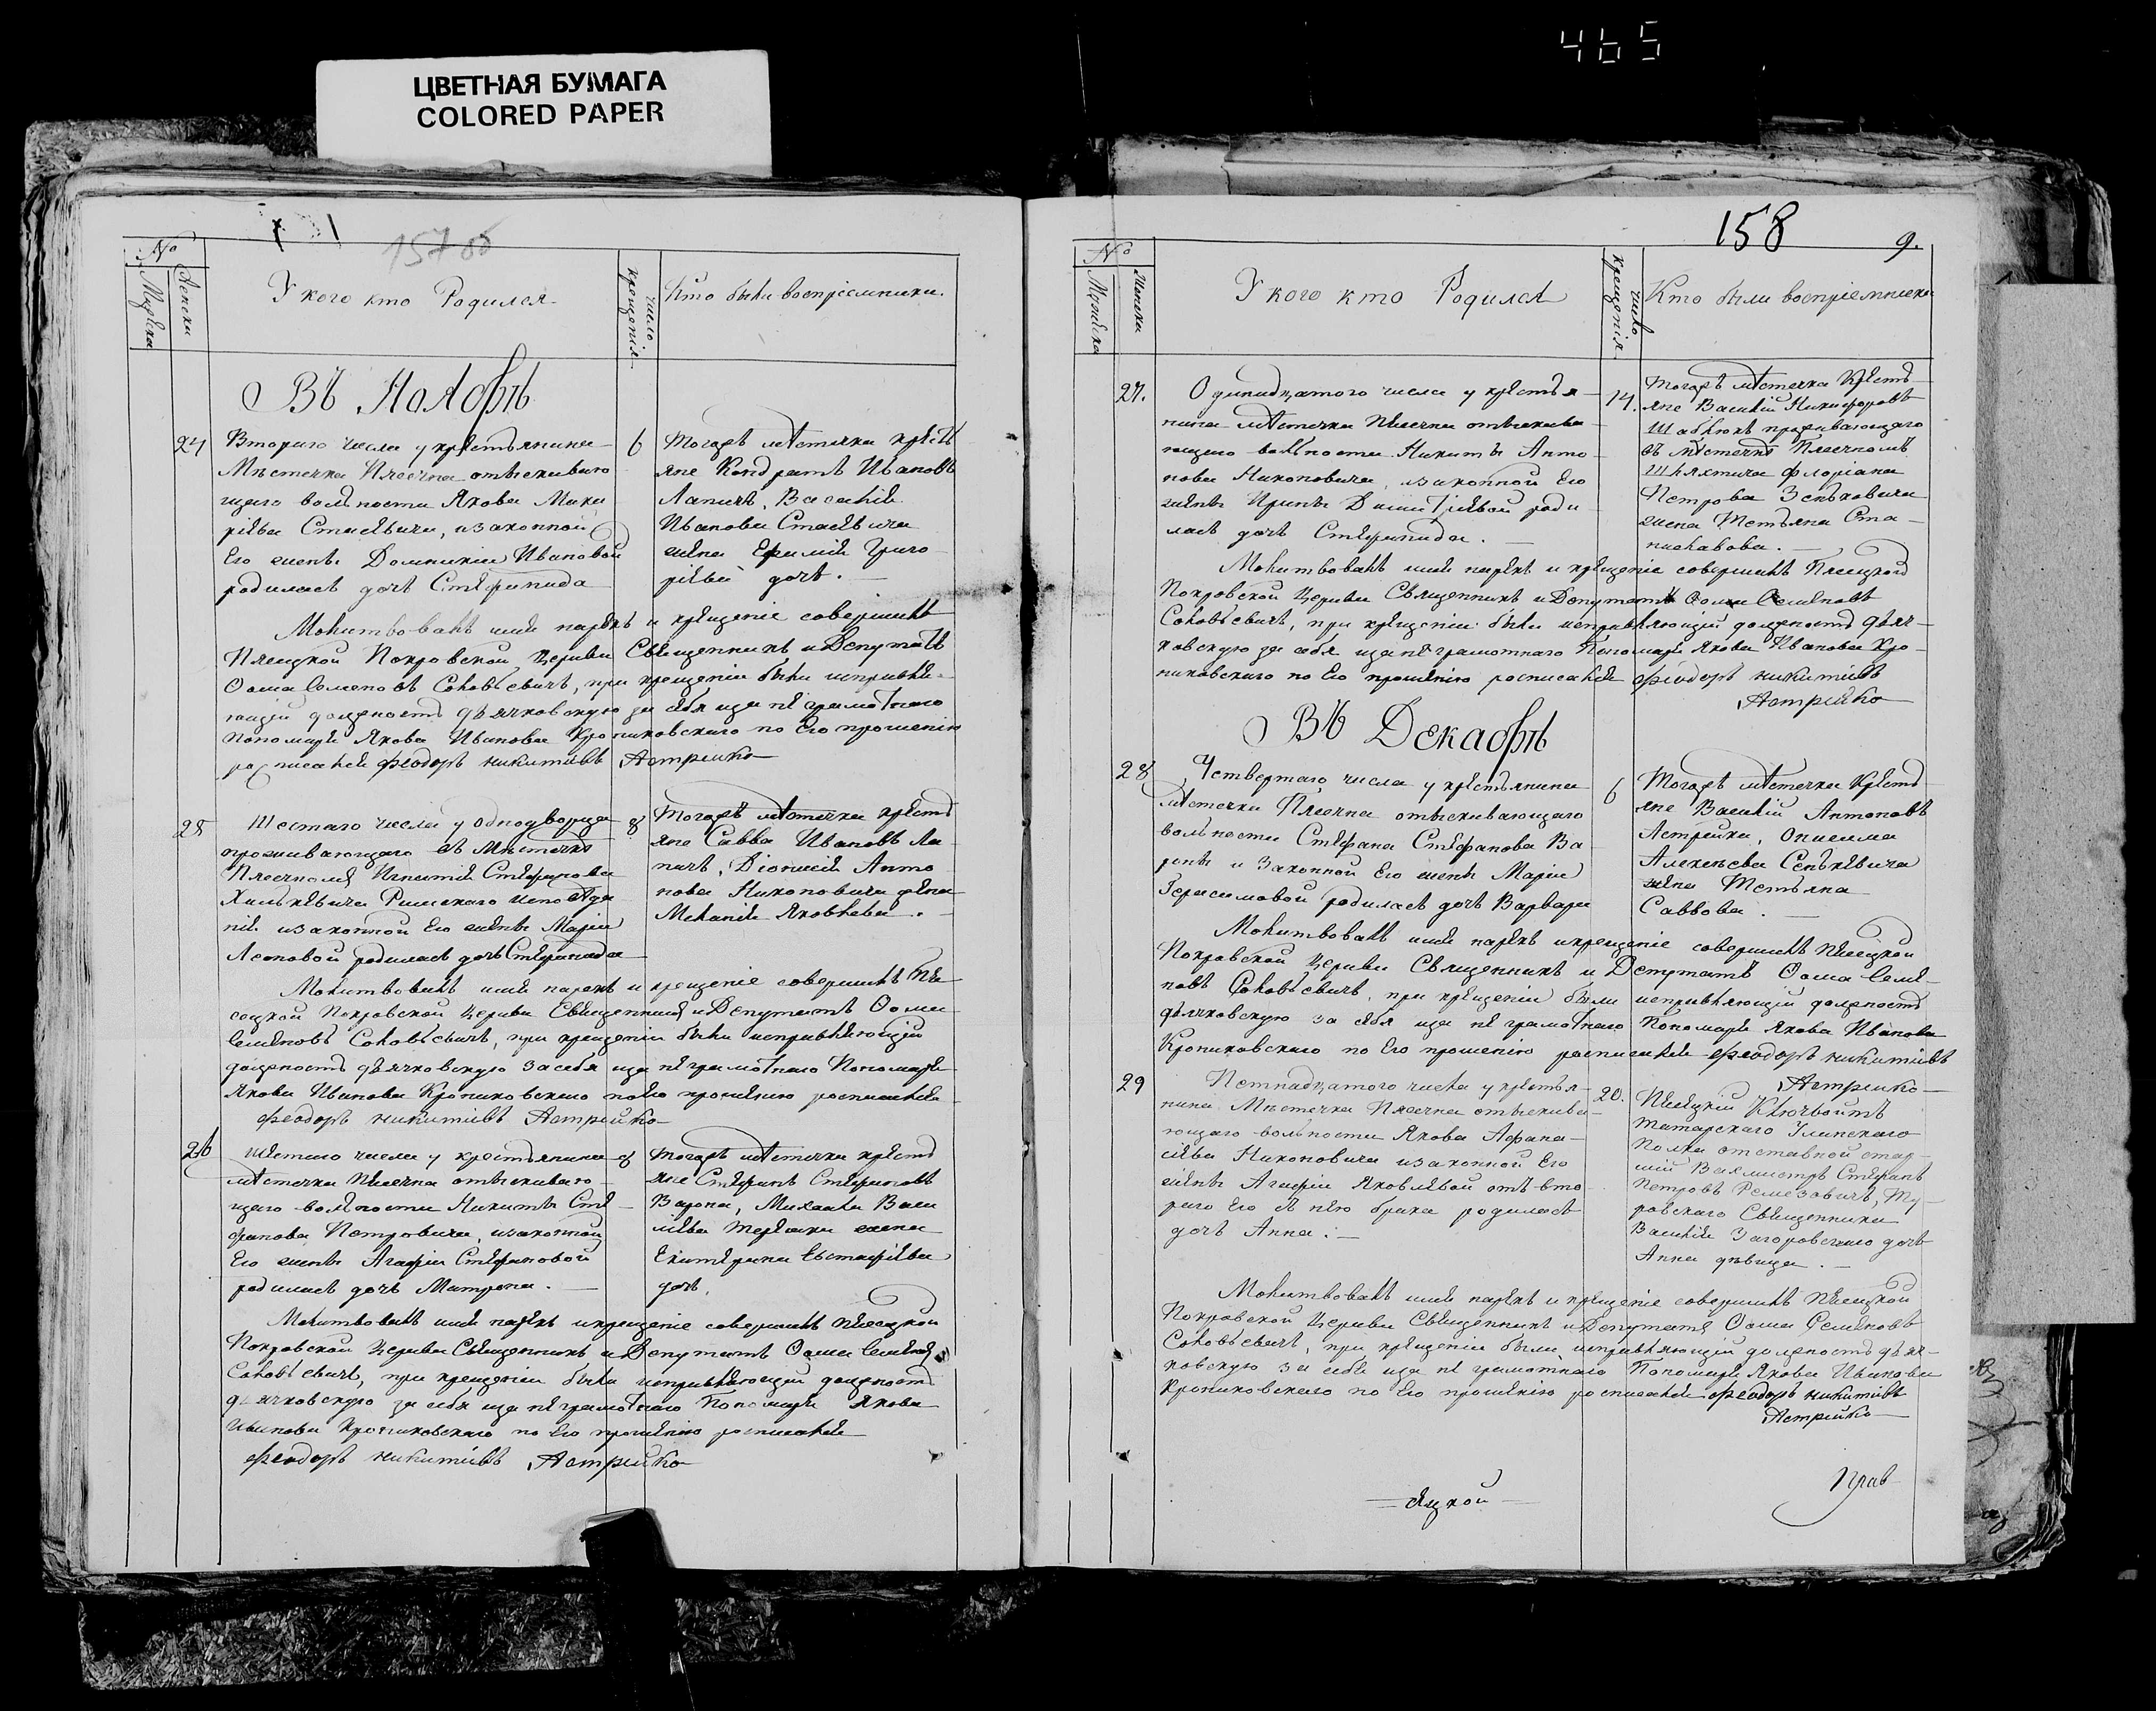 465
ЦВЕТНАЯ БУМАГА
COLORED PAPER
157 об
№
Мужеска
Женска
У кого кто Родился
число крещенія
Кто были воспріемники.
Въ Ноябрѣ
24
Втораго числа у крестьянина
Мѣстечка Плесчна отыскиваю
щаго вольности Якова Мака
ріева Стасевича, изаконной
Его жены Домникіи Ивановой
родилась дочь Стефанида
6
Тогожъ мѣстечка крестъ
яне Кондратъ Ивановъ
Лапичъ, Василія
Иванова Стасевича
жена Ефимія Григо
ріева дочь.
Молитвовалъ имя нарекъ и крещеніе совершилъ
Плесцкой Покровской Церкви Священникъ и Депутатъ
Ѳома Семеновъ Соловьевичъ, при крещеніи были исправля-
ющій должность дьячковскую за себя иза неграмотнаго
Пономаря Якова Иванова Крониковскаго по Его прошенію
росписался Феодоръ никитивъ Астрейко
25
Шестаго числа у однодворца
проживающаго въ мѣстечкѣ
Плесчномъ Игнатія Стефанова
Хилькевича Римскаго исповѣда
нія изаконной Его жены Маріи
Леоновой родилась дочь Стефанида
8
Тогожъ мѣстечка крестъ
яне Савва Ивановъ Ла-
пичъ, Діонисія Анто
нова Никоновича жена
Меланія Яковлева.
Молитвовалъ имя нарекъ и крещеніе совершилъ Пле
сецкой Покровской Церкви Священникъ и Депутатъ Ѳома
Семеновъ Соловьевичъ, при крещеніи были исправляющій
должность дьячковскую за себя иза неграмотнаго Пономаря
Якова Иванова Крониковскаго по Его прошенію росписался
Феодоръ никитивъ Астрейко
26
Шестаго числа у крестьянина
мѣстечка Плесчна отыскиваю-
щаго вольности Никиты Сте-
фанова Петровича, изаконной
Его жены Агафіи Стефановой
родилась дочь Матрона.
8
Тогожъ мѣстечка крестъ
яне Стефанъ Стефановъ
Варона, Михаила Васи
ліева жена
Екатерина Евстафіева
дочь.
Молитвовалъ имя нарекъ икрещеніе совершилъ Плесецкой
Покровской Церкви Священникъ и Депутатъ Ѳома Семеновъ
Соловьевичъ, при крещеніи были исправляющій должность
дьячковскую за себя иза неграмотнаго Пономаря Якова
Иванова Крониковскаго по Его прошенію росписался
Феодоръ никитивъ Астрейко
158
9.
№
Мужеска
Женска
У кого кто Родился
число крещенія
Кто были воспріемники
27.
Одинадцатого числа у крестья-
нина мѣстечка Плесчна отыскива
ющаго вольности Никиты Анто-
нова Никоновича, изаконной Его
жены Ирины Димитріевой роди-
лась дочь Стефанида.
14.
Тогожъ мѣстечка Крестъ-
яне Василій Никифоровъ
проживающаго
въ мѣстечкѣ Плесчномъ
Шляхтича Флоріана
Петрова Зеньковича
жена Тетьяна Ста-
ниславова.
Молитвовалъ имя нарекъ и крещеніе совершилъ Плесцкой
Покровской Церкви Священникъ и Депутатъ Ѳома Семеновъ
Соловьевичъ, при крещеніи были исправляющій должность дьяч-
ковскую за себя иза неграмотнаго Пономаря Якова Иванова Кро-
никовскаго по Его прошенію росписался Феодоръ никитивъ
Астрейко
Въ Декабрѣ
28
Четвертаго числа у крестьянина
мѣстечка Плесчна отыскивающаго
вольности Стефана Стефанова Ва
роны и Законной Его жены Маріи
Герасимовой родилась дочь Варвара
6
Тогожъ мѣстечка Крестъ
яне Василій Антоновъ
Астрейка, Онисима
Алексѣева Сенькевича
жена Тетьяна
Саввова.
Молитвовалъ имя нарекъ икрещеніе совершилъ Плесецкой
Покровской Церкви Священникъ и Депутатъ Ѳома Семе-
новъ Соловьевичъ, при крещеніи были исправляющій должность
дьячковскую за себя иза неграмотнаго Пономаря Якова Иванова
Крониковскаго по Его прошенію росписался Феодоръ никитивъ
Астрейко
29
Петнадцатого числа у крестья-
нина Мѣстечка Плесчна отыскива-
ющаго вольности Якова Афана-
сіева Никоновича изаконной Его
жены Агафіи Яковлевой отъ вто-
раго Его съ нею брака родилась
дочь Анна.
20.
Плесецкій Ключвойтъ
Татарскаго Уланскаго
Полка отставной стар-
шій Вахмистръ Стефанъ
Петровъ Ремезовичъ, Ту-
ровскаго Священника
Василія Загоровскаго дочь
Анна дѣвица.
Молитвовалъ имя нарекъ и крещеніе совершилъ Плесецкой
Покровской Церкви Священникъ иДепутатъ Ѳома Семеновъ
Соловьевичъ, при крещеніи были исправляющій должность дьяч-
ковскую за себя иза неграмотнаго Пономаря Якова Иванова
Крониковскаго по Его прошенію росписался Феодоръ никитивъ
Астрейко
Прав